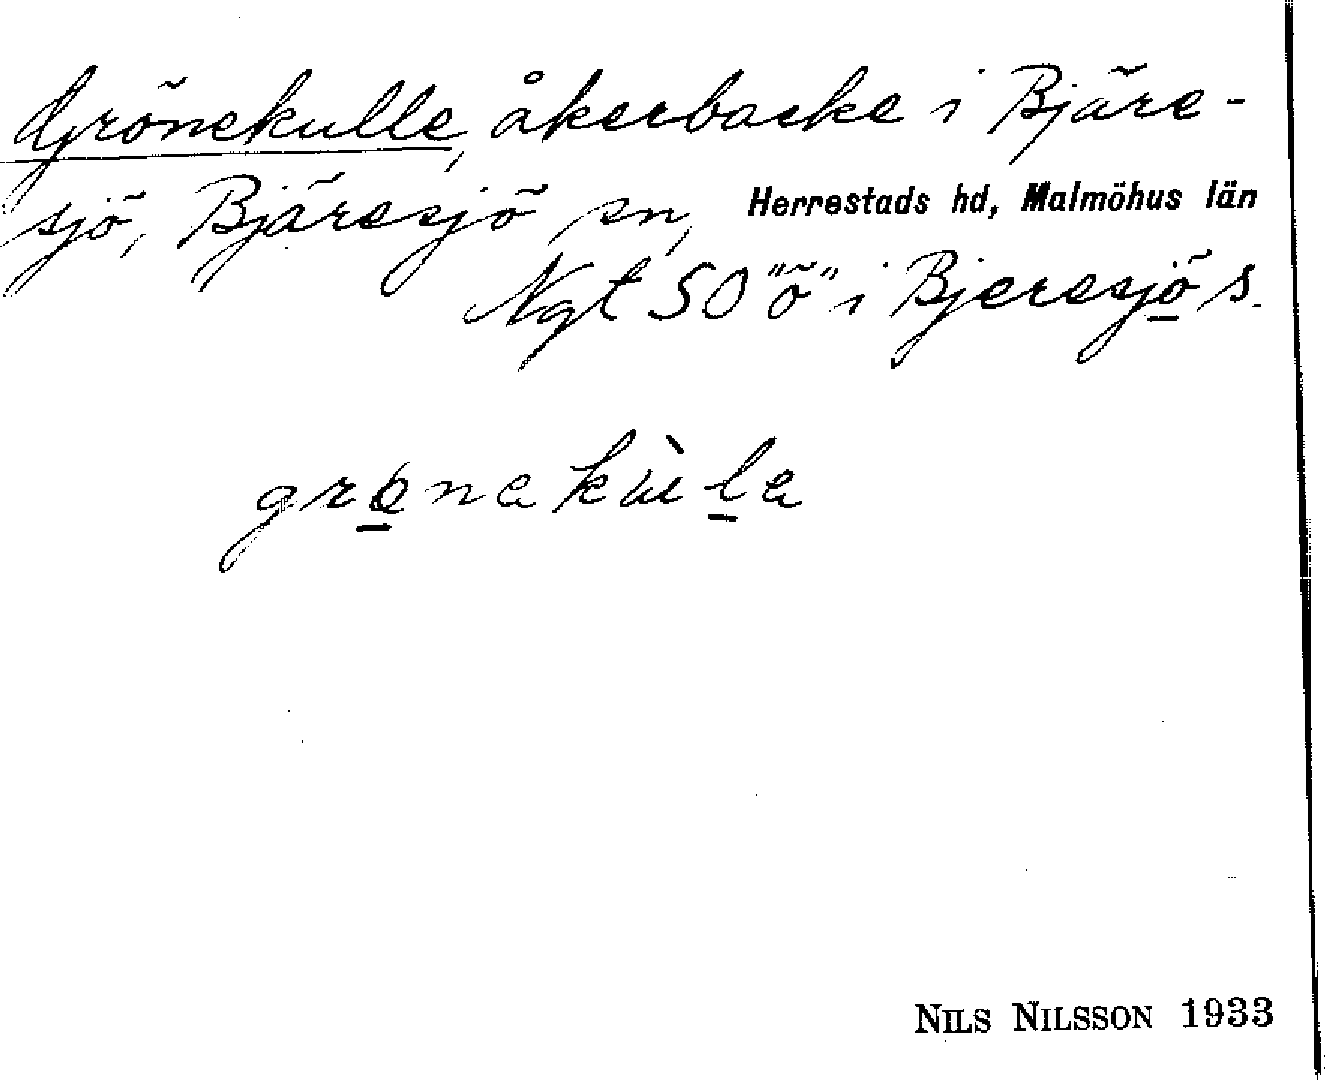 Grönekulle, åkerbacke i Bjäre-
sjö, Bjäresjö sn, Herrestads hd, Malmöhus län
Ngt SO "ö" i Bjeresjö s.
grønekùle
NILS NILSSON 1933